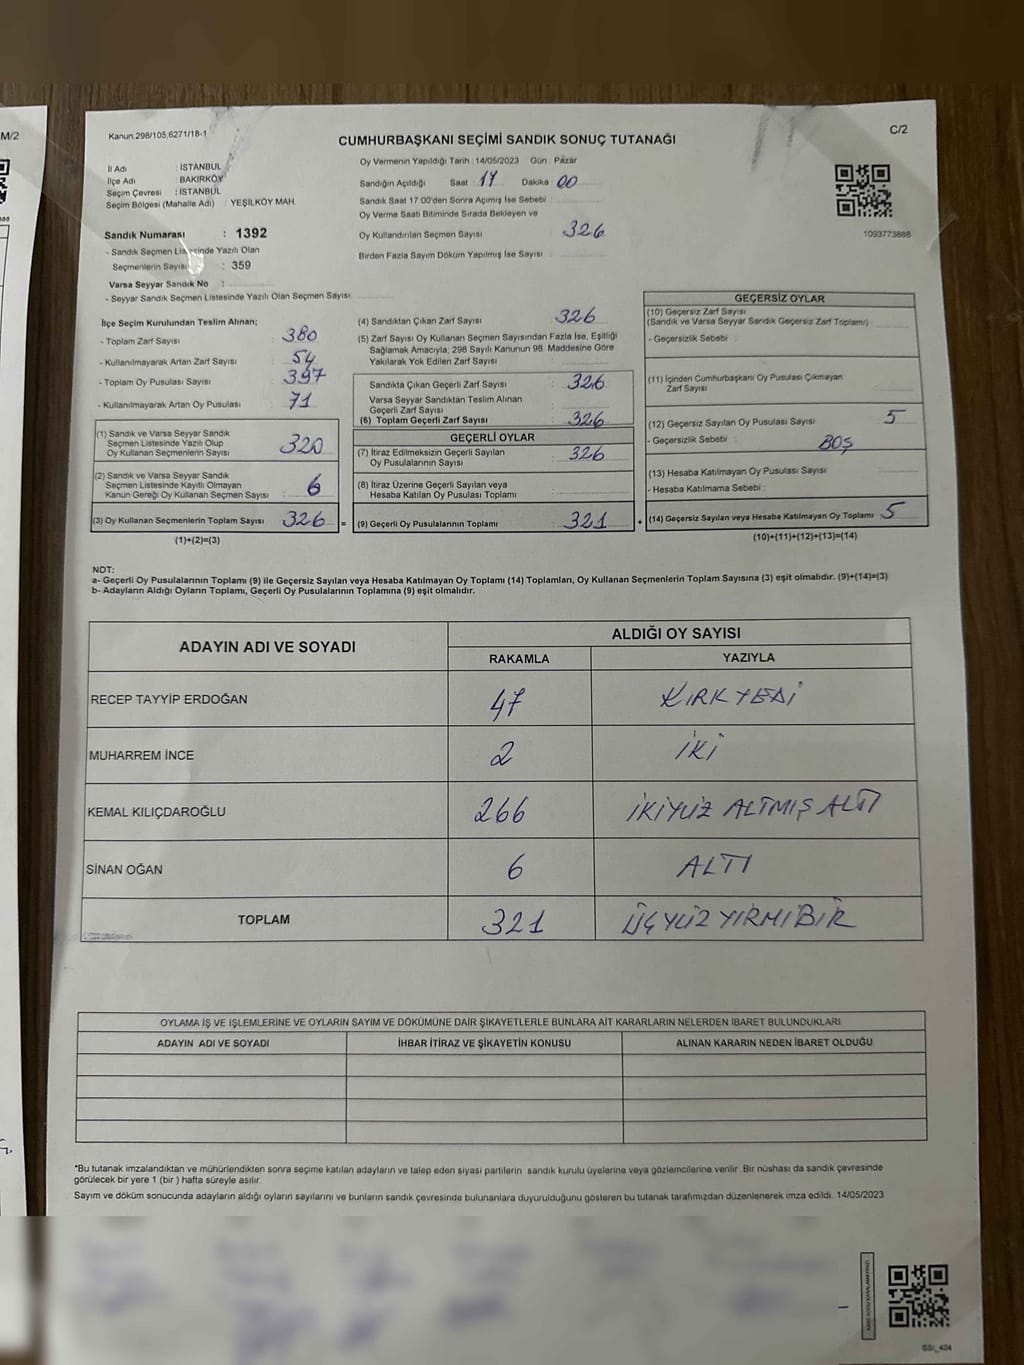 M/2
Kanun.298/105,6271/18-1
C/2
CUMHURBAŞKANI SEÇİMİ SANDIK SONUÇ TUTANAĞI
İl Adı : İSTANBUL
İlçe Adı : BAKIRKÖY
Seçim Çevresi : İSTANBUL
Seçim Bölgesi (Mahalle Adı) : YEŞİLKÖY MAH.
Sandık Numarası : 1392
- Sandık Seçmen Listesinde Yazılı Olan
Seçmenlerin Sayısı : 359
Varsa Seyyar Sandık No :
- Seyyar Sandık Seçmen Listesinde Yazılı Olan Seçmen Sayısı:
Oy Vermenin Yapıldığı Tarih :14/05/2023 Gün : Pazar
Sandığın Açıldığı Saat : 17 Dakika : 00
Sandık Saat 17.00'den Sonra Açımış İse Sebebi :
Oy Verme Saati Bitiminde Sırada Bekleyen ve
Oy Kullandırılan Seçmen Sayısı : 326
Birden Fazla Sayım Döküm Yapılmış İse Sayısı :
1093773888
İlçe Seçim Kurulundan Teslim Alınan;
- Toplam Zarf Sayısı : 380
- Kullanılmayarak Artan Zarf Sayısı : 54
- Toplam Oy Pusulası Sayısı : 397
- Kullanılmayarak Artan Oy Pusulası : 71
(1) Sandık ve Varsa Seyyar Sandık
Seçmen Listesinde Yazılı Olup
Oy Kullanan Seçmenlerin Sayısı : 320
(2) Sandık ve Varsa Seyyar Sandık
Seçmen Listesinde Kayıtlı Olmayan
Kanun Gereği Oy Kullanan Seçmen Sayısı : 6
(3) Oy Kullanan Seçmenlerin Toplam Sayısı : 326 =
(1)+(2)=(3)
(4) Sandıktan Çıkan Zarf Sayısı : 326
(5) Zarf Sayısı Oy Kullanan Seçmen Sayısından Fazla İse, Eşitliği
Sağlamak Amacıyla; 298 Sayılı Kanunun 98. Maddesine Göre
Yakılarak Yok Edilen Zarf Sayısı :
Sandıkta Çıkan Geçerli Zarf Sayısı : 326
Varsa Seyyar Sandıktan Teslim Alınan
Geçerli Zarf Sayısı :
(6) Toplam Geçerli Zarf Sayısı : 326
GEÇERLİ OYLAR
(7) İtiraz Edilmeksizin Geçerli Sayılan
Oy Pusulalarının Sayısı : 326
(8) İtiraz Üzerine Geçerli Sayılan veya
Hesaba Katılan Oy Pusulası Toplamı :
(9) Geçerli Oy Pusulalarının Toplamı : 321 +
GEÇERSİZ OYLAR
(10) Geçersiz Zarf Sayısı
(Sandık ve Varsa Seyyar Sandık Geçersiz Zarf Toplamı)
- Geçersizlik Sebebi :
(11) İçinden Cumhurbaşkanı Oy Pusulası Çıkmayan
Zarf Sayısı
(12) Geçersiz Sayılan Oy Pusulası Sayısı : 5
- Geçersizlik Sebebi : BOŞ
(13) Hesaba Katılmayan Oy Pusulası Sayısı
- Hesaba Katılmama Sebebi :
(14) Geçersiz Sayılan veya Hesaba Katılmayan Oy Toplamı : 5
(10)+(11)+(12)+(13)=(14)
NOT:
a- Geçerli Oy Pusulalarının Toplamı (9) ile Geçersiz Sayılan veya Hesaba Katılmayan Oy Toplamı (14) Toplamları, Oy Kullanan Seçmenlerin Toplam Sayısına (3) eşit olmalıdır. (9)+(14)=(3)
b- Adayların Aldığı Oyların Toplamı, Geçerli Oy Pusulalarının Toplamına (9) eşit olmalıdır.
ADAYIN ADI VE SOYADI
ALDIĞI OY SAYISI
RAKAMLA YAZIYLA
RECEP TAYYİP ERDOĞAN 47 KIRKYEDİ
MUHARREM İNCE 2 İKİ
KEMAL KILIÇDAROĞLU 266 İKİYÜZ ALTMIŞ ALTI
SİNAN OĞAN 6 ALTI
TOPLAM 321 ÜÇYÜZ YİRMİBİR
OYLAMA İŞ VE İŞLEMLERİNE VE OYLARIN SAYIM VE DÖKÜMÜNE DAİR ŞİKAYETLERLE BUNLARA AİT KARARLARIN NELERDEN İBARET BULUNDUKLARI
ADAYIN ADI VE SOYADI İHBAR İTİRAZ VE ŞİKAYETİN KONUSU ALINAN KARARIN NEDEN İBARET OLDUĞU
*Bu tutanak imzalandıktan ve mühürlendikten sonra seçime katılan adayların ve talep eden siyasi partilerin sandık kurulu üyelerine veya gözlemcilerine verilir. Bir nüshası da sandık çevresinde
görülecek bir yere 1 (bir ) hafta süreyle asılır.
Sayım ve döküm sonucunda adayların aldığı oyların sayılarını ve bunların sandık çevresinde bulunanlara duyurulduğunu gösteren bu tutanak tarafımızdan düzenlenerek imza edildi. 14/05/2023